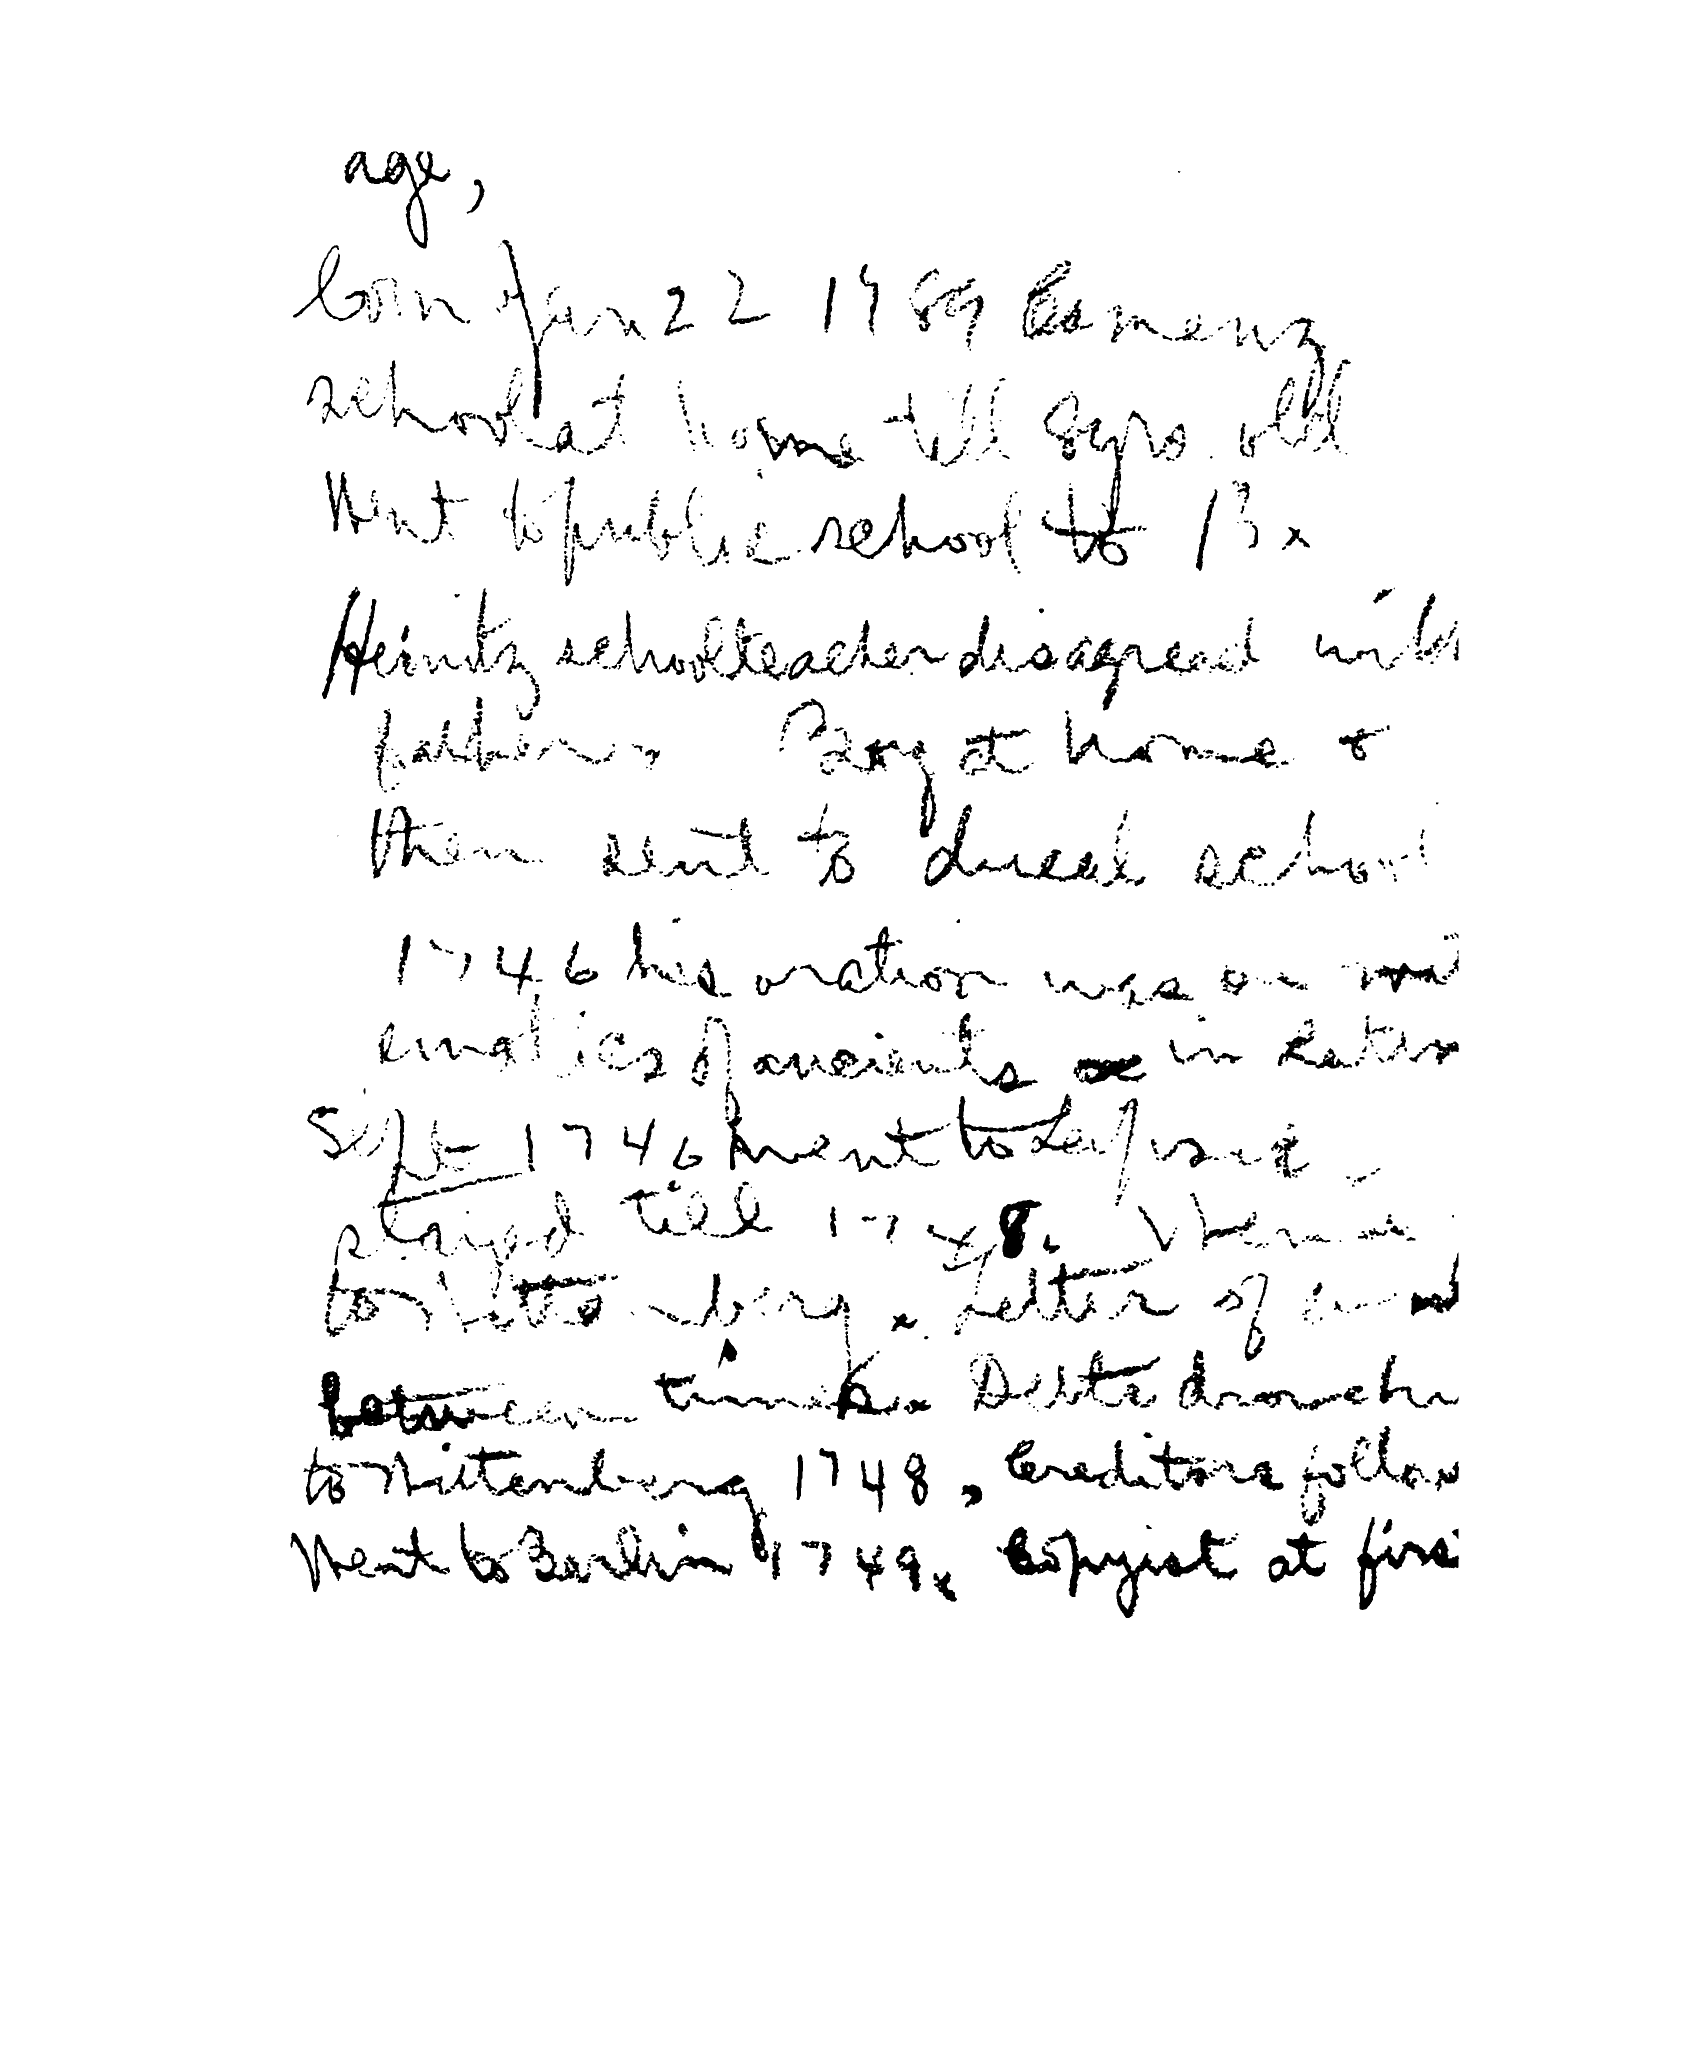 age,
born Jan 22 1789 Camenz
school at home till 8 yrs. old
Went to public school to 13.
Heinitz schoolteacher disagreed with
father. Boy at home &
then sent to ducal school
1746 his oration was on mat
ematics of ancients in Latin
Sept 1746 went to Leipsic
stayed till 1748.
to Wittenberg. Letter of
between times. Debts drove him
to Wittenberg 1748, Creditors follow
Went to Berlin 1749. Copyist at firs